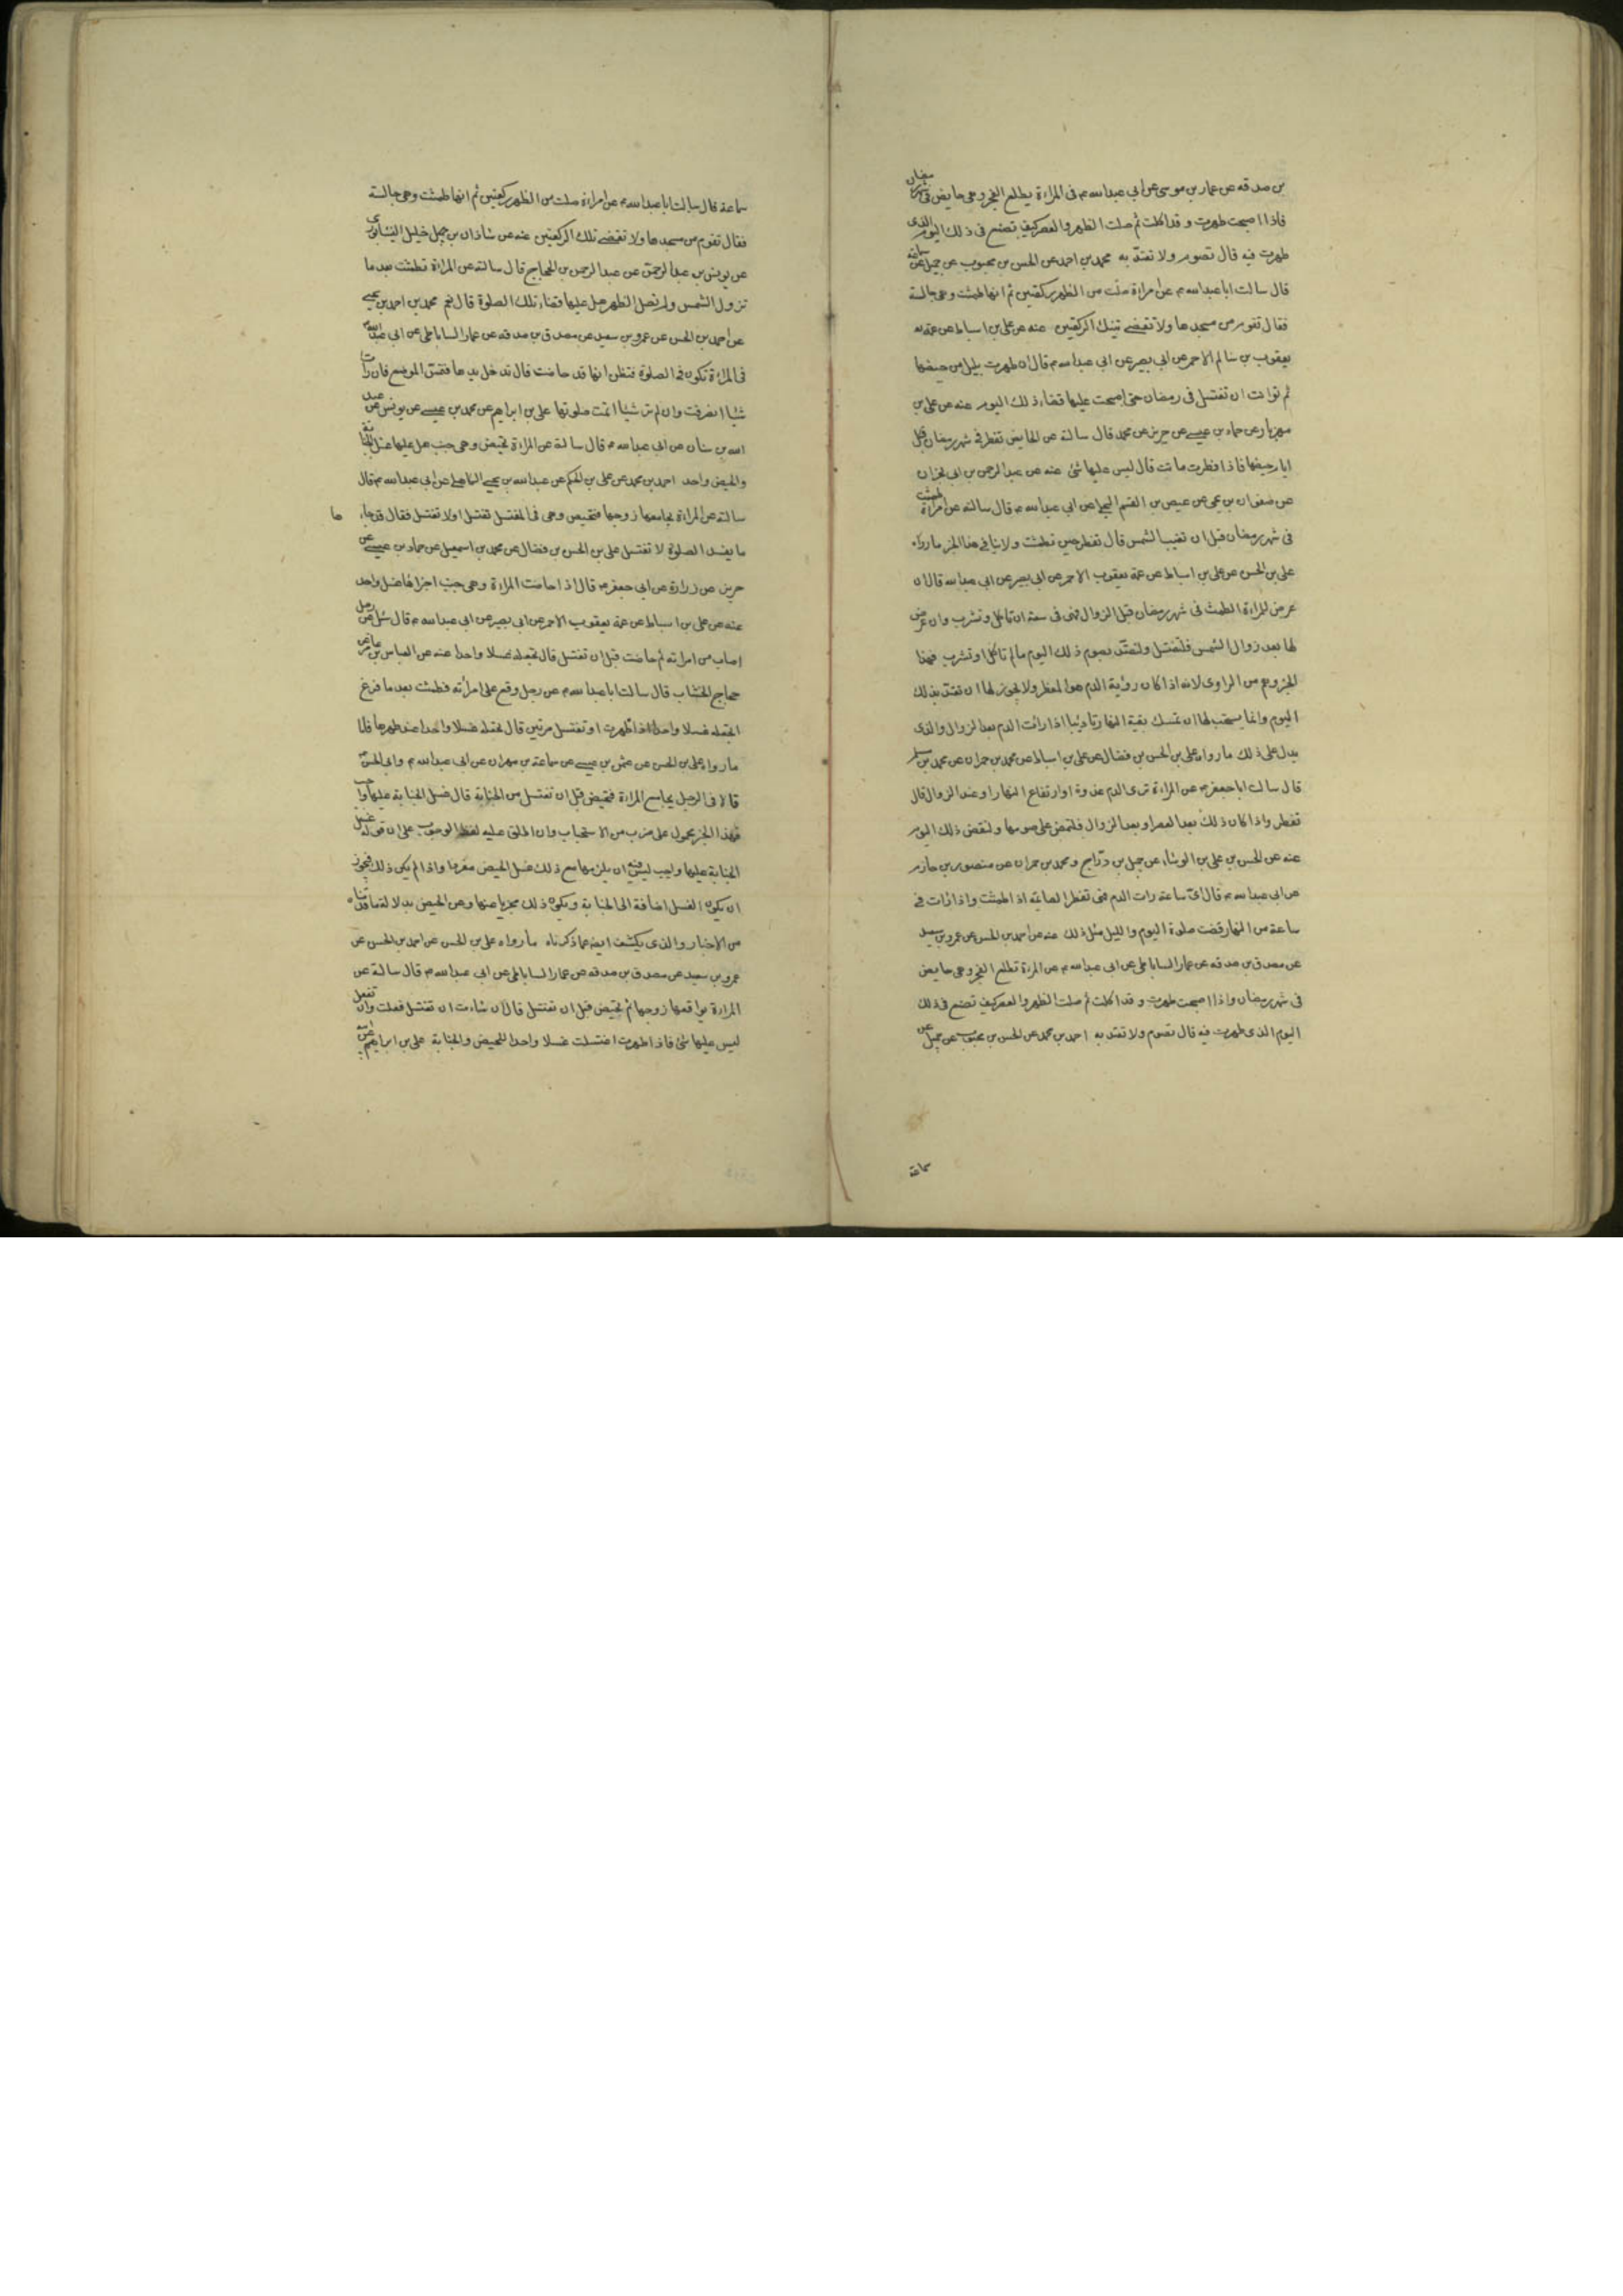 بن صدقه عن عمار بن موسى عن ابى عبدالله ع فى المراءة يطلع الفجر وهى حايض فى شهر رمضان
فاذا اصبحت طهرت وقد اكلت ثم صلت الظهر والعصر كيف تصنع فى ذلك اليوم الذى
طهرت فيه قال تصوم ولا تعتد به محمد بن احمد عن الحسن بن محبوب عن جميل عن سماعة
قال سالت ابا عبدالله ع عن امراءة صلت من الظهر ركعتين ثم انها طمثت وهى جالسة
فقال تقوم من مسجدها ولا تقضى تينك الركعتين عنه عن على بن اسباط عن عمه
يعقوب بن سالم الاحمر عن ابى بصير عن ابى عبدالله ع قال ان طهرت بليل من حيضها
ثم توانت ان تغتسل فى رمضان حتى اصبحت عليها قضاء ذلك اليوم عنه عن على بن
مهزيار عن حماد بن عيسى عن حريز عن محمد قال سالته عن الحايض تفطر فى شهر رمضان
ايام حيضها فاذا افطرت ماتت قال ليس عليها شئ عنه عن عبدالرحمن بن ابى نجران
عن صفوان بن يحيى عن عيص بن القسم البجلى عن ابى عبدالله ع قال سالته عن امراءة طمثت
فى شهر رمضان قبل ان تغيب الشمس قال تفطر حين تطمث ولا ينافى هذا الخبر ما رواه
على بن الحسن عن على بن اسباط عن عمه يعقوب الاحمر عن ابى بصير عن ابى عبدالله قال ان
عرض للمراءة الطمث فى شهر رمضان قبل الزوال فهى فى سعة ان تاكل وتشرب وان عرض
لها بعد زوال الشمس فلتغتسل ولتعتد بصوم ذلك اليوم ما لم تاكل او تشرب فهذا
الخبر وهم من الراوى لانه اذا كان رؤية الدم هو المفطر ولا يجوز لها ان تعتد بذلك
اليوم وانما يستحب لها ان تمسك بقية النهار تاديبا اذا رات الدم بعد الزوال والذى
يدل على ذلك ما رواه على بن الحسن بن فضال عن على بن اسباط عن محمد بن حمران عن محمد بن مسلم
قال سالت ابا جعفر ع عن المراءة ترى الدم غدوة او ارتفاع النهار او عند الزوال قال
تفطر واذا كان ذلك بعد العصر او بعد الزوال فلتمض على صومها ولتقض ذلك اليوم
عنه عن الحسن بن على بن الوشاء عن جميل بن دراج ومحمد بن حمران عن منصور بن حازم
عن ابى عبدالله ع قال اى ساعة رات الدم فهى تفطر الصائمة اذا طمثت واذا رات فى
ساعة من النهار قضت صلوة اليوم والليل مثل ذلك عنه عن احمد بن الحسن عن عمرو بن سعيد
عن مصدق بن صدقه عن عمار الساباطى عن ابى عبدالله ع عن المراءة تطلع الفجر وهى حايض
فى شهر رمضان واذا اصبحت طهرت وقد اكلت ثم صلت الظهر والعصر كيف تصنع فى ذلك
اليوم الذى طهرت فيه قال تصوم ولا تعتد به احمد بن محمد عن الحسن بن محبوب عن جميل عن
سماعة
سماعة قال سالت ابا عبدالله ع عن امراءة صلت من الظهر ركعتين ثم انها طمثت وهى جالسة
فقال تقوم من مسجدها ولا تقضى تلك الركعتين عنه عن شاذان بن خليل النيشابورى
عن يونس بن عبدالرحمن عن عبدالرحمن بن الحجاج قال سالته عن المراءة تطمث بعد ما
تزول الشمس ولم تصل الظهر هل عليها قضاء تلك الصلوة قال نعم محمد بن احمد بن يحيى
عن احمد بن الحسن عن عمرو بن سعيد عن مصدق بن صدقه عن عمار الساباطى عن ابى عبدالله
فى المراءة تكون فى الصلوة فتظن انها قد حاضت قال تدخل يدها فتمس الموضع فان رات
شيئا انصرفت وان لم تر شيئا اتمت صلوتها على بن ابراهيم عن محمد بن عيسى عن يونس عن عبد
الله بن سنان عن ابى عبدالله ع قال سالته عن المراءة تحيض وهى جنب هل عليها غسل الجنابة
والحيض واحد احمد بن محمد عن على بن الحكم عن عبدالله بن يحيى الكاهلى عن ابى عبدالله ع قال
سالته عن المراءة يجامعها زوجها فتحيض وهى فى المغتسل تغتسل او لا تغتسل فقال قد جاءها
ما يفسد الصلوة لا تغتسل على بن الحسن بن فضال عن محمد بن اسمعيل عن حماد بن عيسى عن
حريز عن زرارة عن ابى جعفر ع قال اذا حاضت المراءة وهى جنب اجزاها غسل واحد
عنه عن على بن اسباط عن عمه يعقوب الاحمر عن ابى بصير عن ابى عبدالله ع قال سئل عن رجل
اصاب من امراته ثم حاضت قبل ان تغتسل قال تجعله غسلا واحدا عنه عن العباس بن عامر عن
حجاج الخشاب قال سالت ابا عبدالله ع عن رجل وقع على امرأته فطمثت بعد ما فرغ
اتجعله غسلا واحدا اذا طهرت او تغتسل مرتين قال تجعله غسلا واحدا عند طهرها فاما
ما رواه على بن الحسن عن عثمن بن عيسى عن سماعة بن مهران عن ابى عبدالله ع وابى الحسن
قالا فى الرجل يجامع المراءة فتحيض قبل ان تغتسل من الجنابة قال غسل الجنابة عليها واجب
فهذا الخبر محمول على ضرب من الاستحباب وان اطلق عليه لفظ الوجوب على ان قوله غسل
الجنابة عليها واجب ليس فيه ان يلزمها مع ذلك غسل الحيض مفردا واذا لم يكن ذلك فيجوز
ان يكون الغسل اضافة الى الجنابة ويكون ذلك مجزيا عنها وعن الحيض بدلالة ما قدمناه
من الاخبار والذى يكشف ايضا عما ذكرناه ما رواه على بن الحسن عن احمد بن الحسن عن
عمرو بن سعيد عن مصدق بن صدقه عن عمار الساباطى عن ابى عبدالله ع قال سالته عن
المراءة يواقعها زوجها ثم تحيض قبل ان تغتسل قال ان شاءت ان تغتسل فعلت وان لم تفعل
ليس عليها شئ فاذا طهرت اغتسلت غسلا واحدا للحيض والجنابة على بن ابراهيم عن ابيه